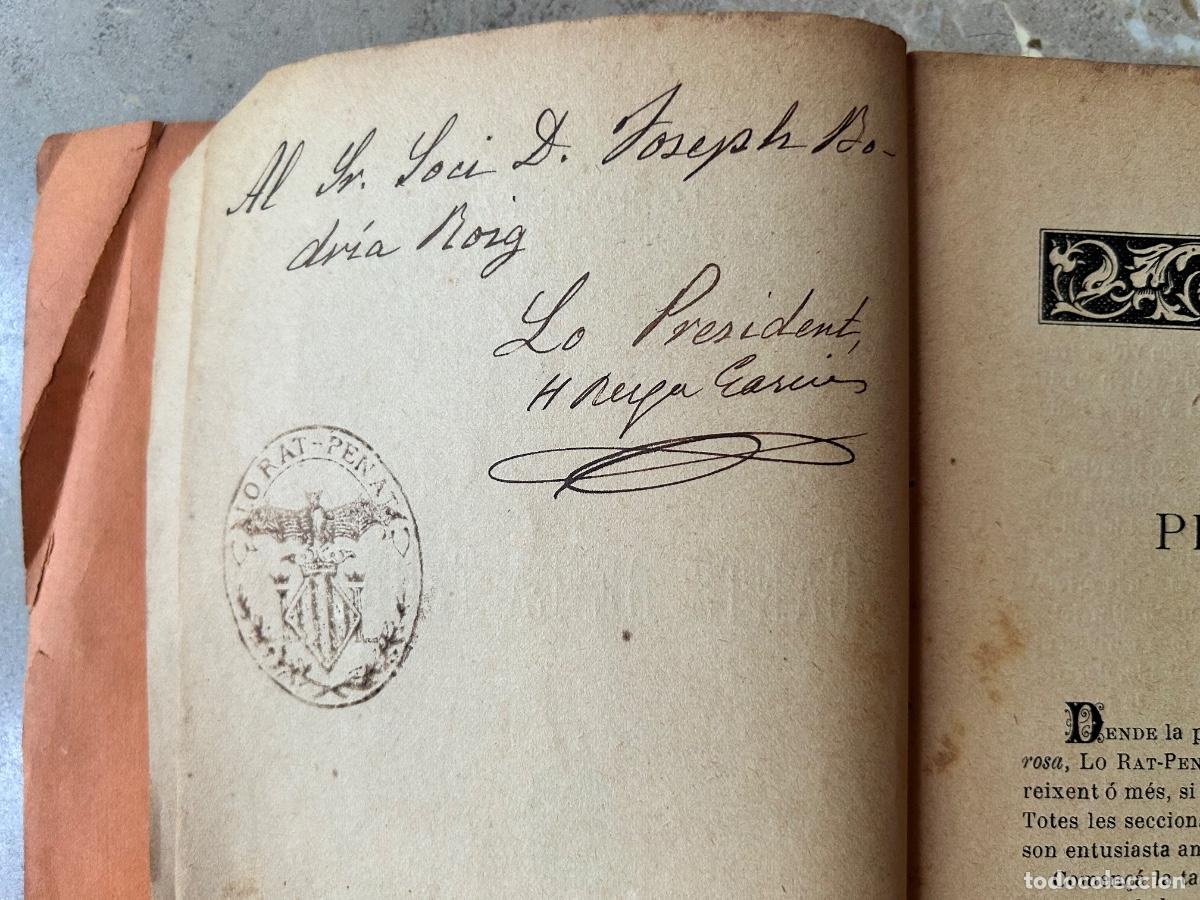 Al Sr. Soci D. Joseph Bo-
dría Roig
Lo President,
LO RAT-PENAT
PE
DENDE la p
rosa, LO RAT-PEN
reixent ó més, si
Totes les seccions
son entusiasta am
Començá la ta
todocoleccion